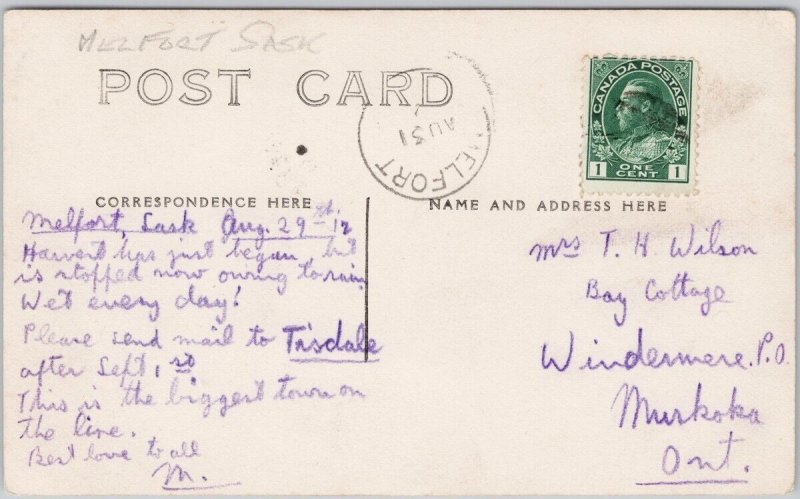 MELFORT SASK
POST CARD
MELFORT
AU 31
CANADA POSTAGE
1 ONE CENT 1
CORRESPONDENCE HERE
Melfort, Sask Aug. 29th 12
Harvest has just began, but
is stopped now owing to rain
Wet every day!
Please send mail to Tisdale
after Sept 1st
This is the biggest town on
the line.
Best love to all
M.
NAME AND ADDRESS HERE
Mrs T. H. Wilson
Bay Cottage
Windermere. P.O.
Muskoka
Ont.